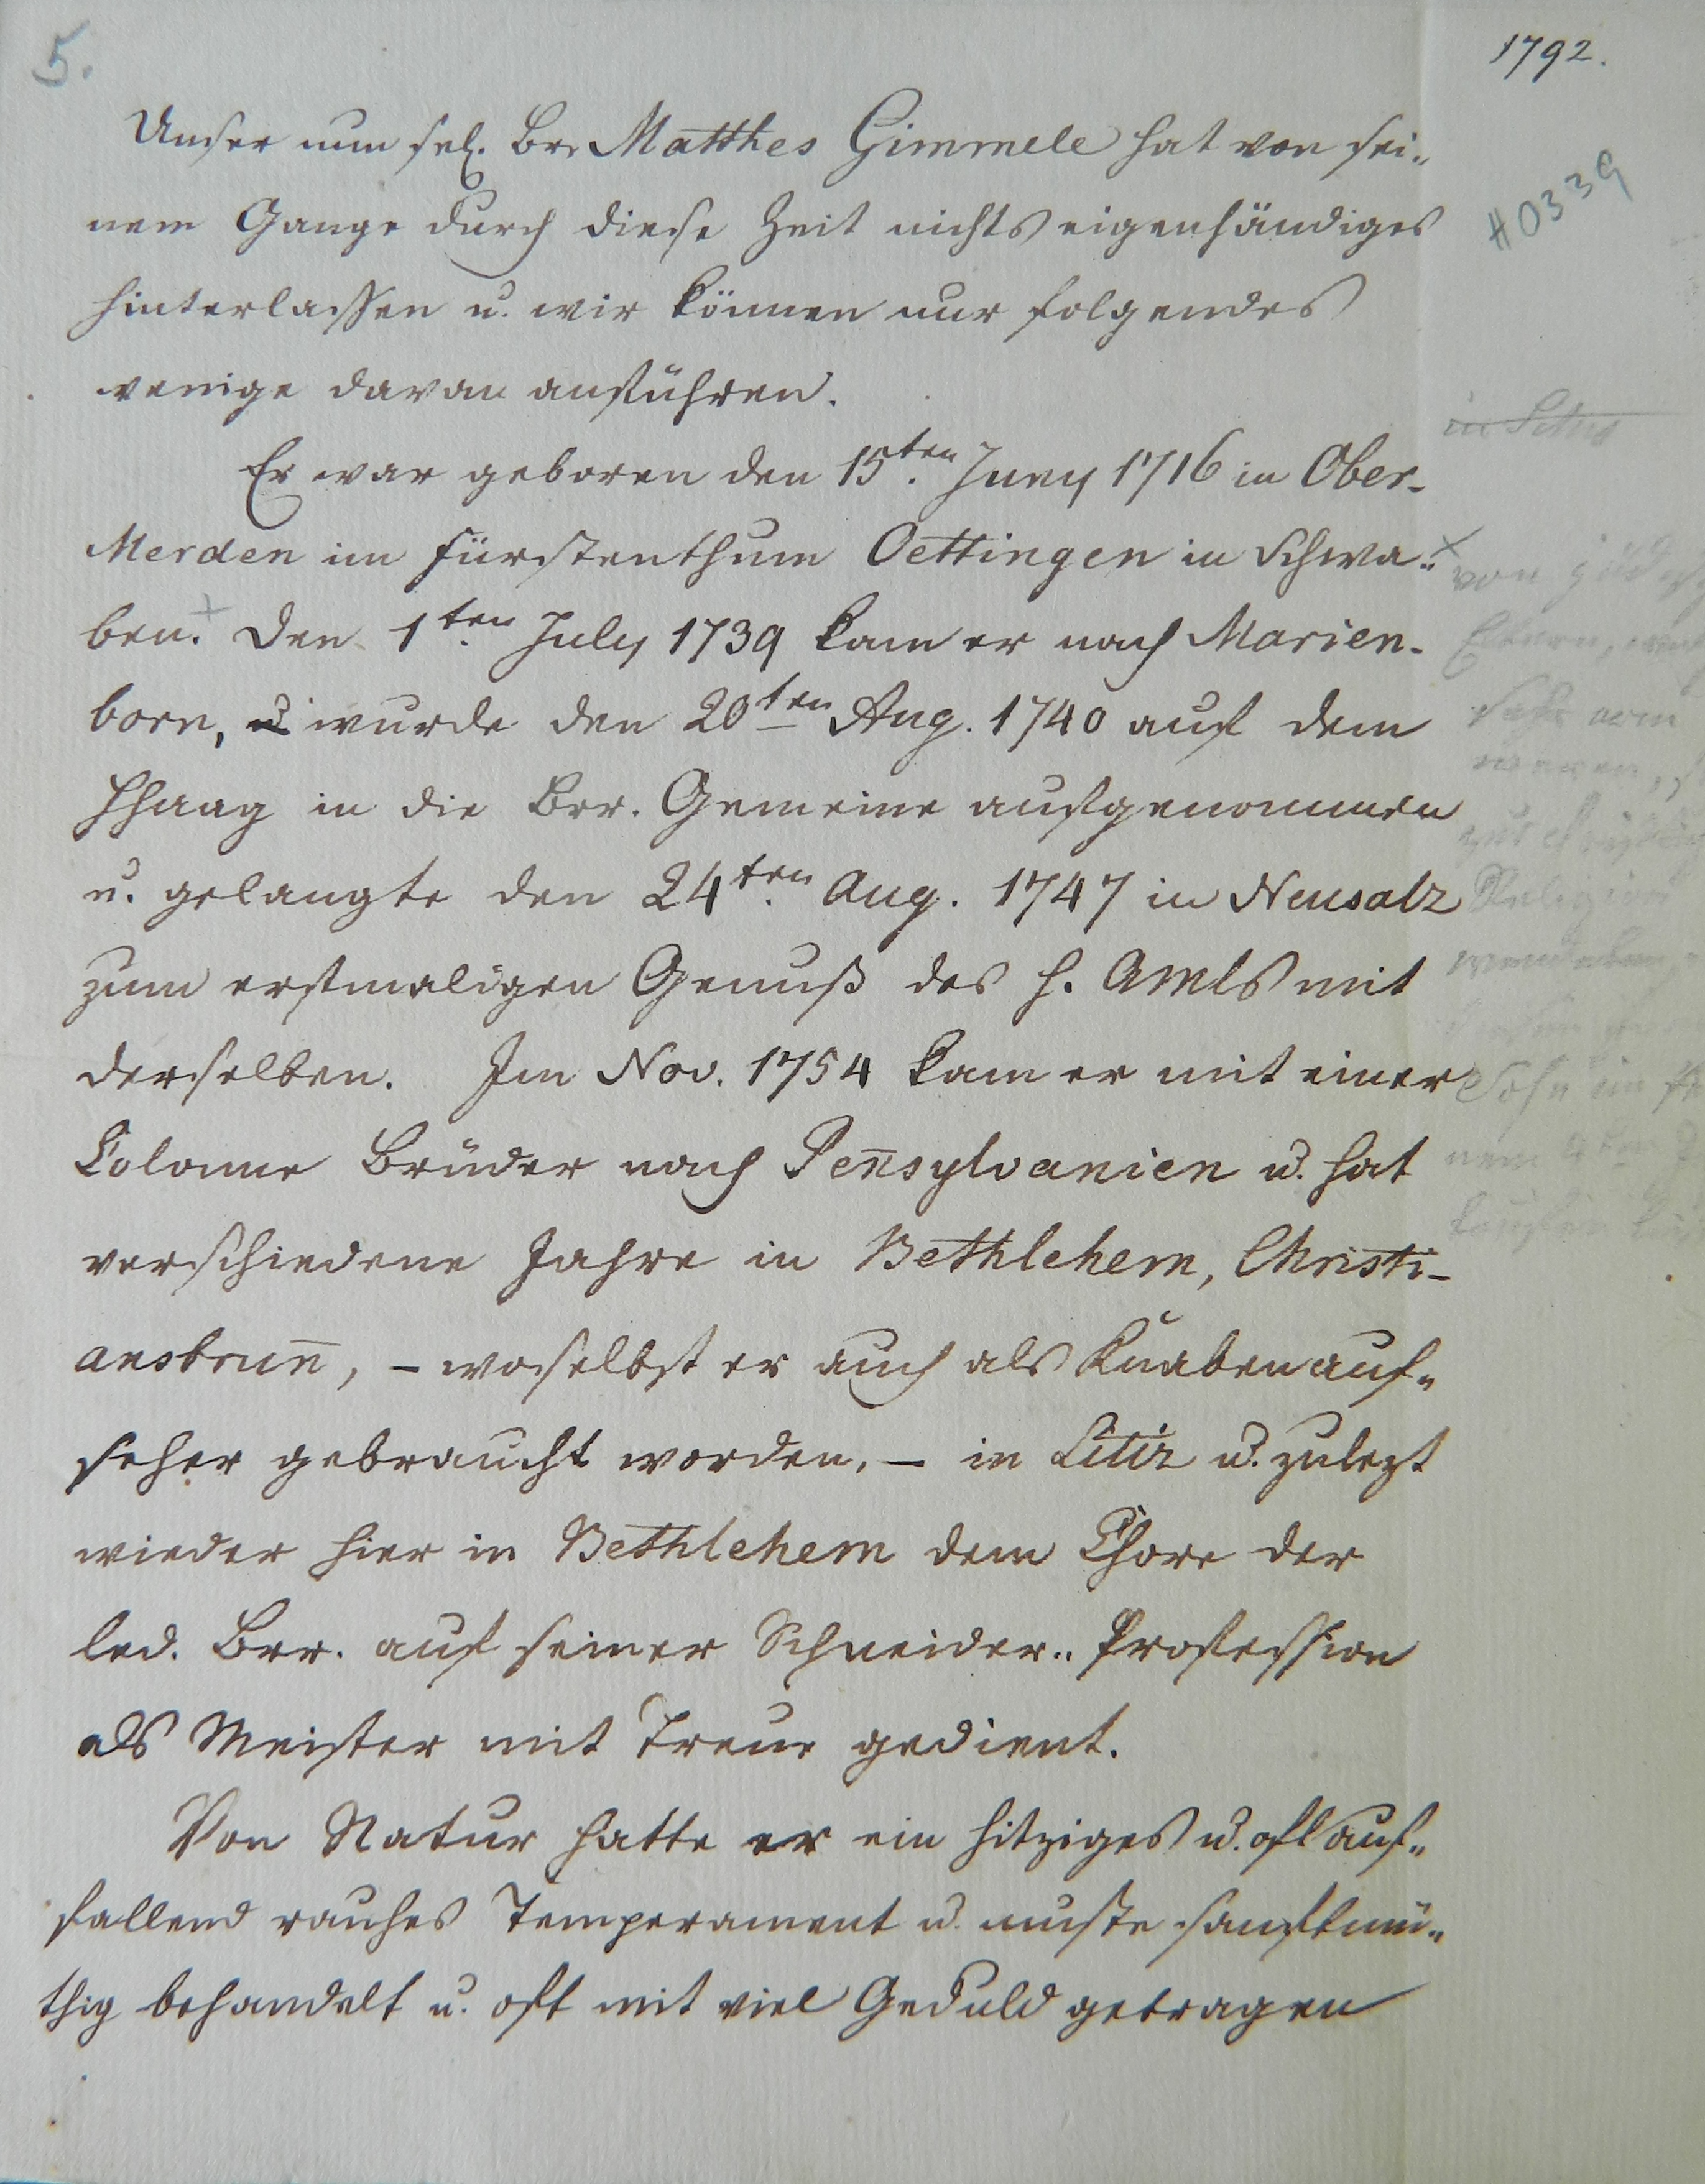 5.
1792.
H0339
Unser nun sel. Br. Matthes Gimmele hat von sei-
nem Gange durch diese Zeit nichts eigenhändiges
hinterlassen u. wir können nur folgendes
wenige davon anführen.
Er war geboren den 15ten Juny 1716 in Ober-
Merden im Fürstenthum Oettingen in Schwa-
ben. Den 1ten July 1739 kam er nach Marien-
born, u. wurde den 20ten Aug. 1740 auf dem
Hhaag in die Brr. Gemeine aufgenommen
u. gelangte den 24ten Aug. 1747 in Neusalz
zum erstmaligen Genuß des h. Amls mit
derselben. Im Nov. 1754 kam er mit einer
Colonne Brüder nach Peñsylvanien u. hat
verschiedene Jahre in Bethlehem, Christi-
ansbrun̄, – woselbst er auch als Knabenauf-
seher gebraucht worden, – in Litiz u. zulezt
wieder hier in Bethlehem dem Chore der
led. Brr. auf seiner Schneider-Profession
als Meister mit Treue gedient.
Von Natur hatte er ein hitziges u. oft auf-
fallend rauhes Temperament u. mußte sanftmü-
thig behandelt u. oft mit viel Geduld getragen
von
Eltern,
sehr arm
waren,
Religion
Sohn im